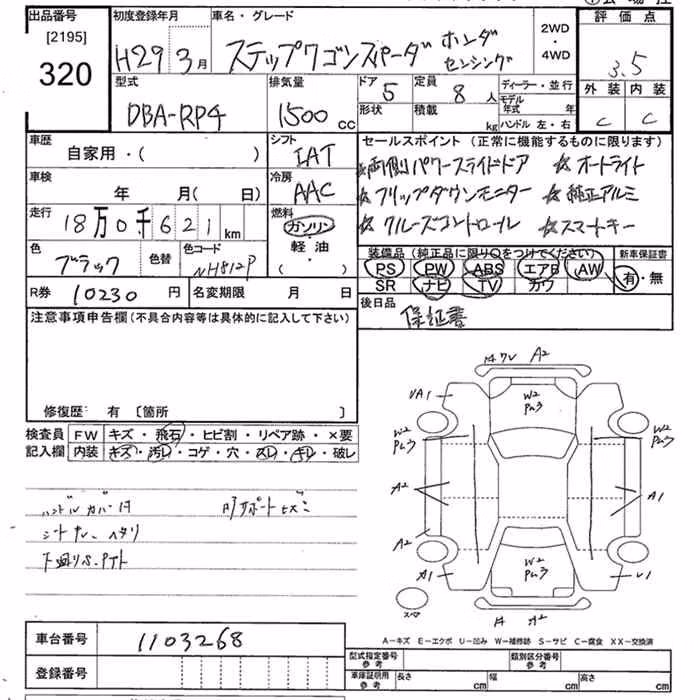 出品番号 初度登録年月 車名・グレード 2WD・4WD 評価点
[2195]
320 H29 3月 ステップワゴンスパーダ ホンダセンシング 3.5
型式 排気量 ドア 5 定員 8 人 ディーラー・並行 外装 内装
DBA-RP4 1500 cc 形状 積載 kg モデル年式 年 ハンドル 左・右 C C
車歴 自家用・( ) シフト IAT セールスポイント (正常に機能するものに限ります)
☆両側パワースライドドア ☆オートライト
車検 年 月(日) 冷房 AAC ☆フリップダウンモニター ☆純正アルミ
走行 18万0千621km 燃料 ガソリン・軽油・( ) ☆クルーズコントロール ☆スマートキー
色 ブラック 色替 色コード NH812P 装備品(純正品に限り○をつけてください) 新車保証書
PS PW ABS エアB AW 有・無
SR ナビ TV カワ
R券 10230円 名変期限 月 日 後日品 保証書
注意事項申告欄(不具合内容等は具体的に記入して下さい)
修復歴: 有 〔箇所 〕
検査員 FW キズ・飛石・ヒビ割・リペア跡・×要
記入欄 内装 キズ・汚レ・コゲ・穴・スレ・キレ・破レ
ハンドルカバー付
シートナレ、ヘタリ
下廻りS、
A2
UA1
W2 Pム3
W2 Pム3 W2 Pム3
A2 A1
A2
A1 W2 Pム3 U1
スペア A2
A-キズ E-エクボ U-凹み W-補修跡 S-サビ C-腐食 XX-交換済
車台番号 1103268 型式指定番号 参考 類別区分番号 参考
登録番号 車庫証明用 参考 長さ cm 幅 cm 高さ cm